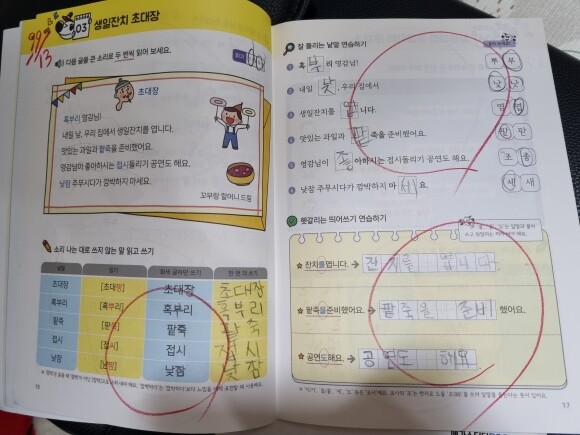 99 9/13
03 생일잔치 초대장
다음 글을 큰 소리로 두 번씩 읽어 보세요.
초대장
혹부리 영감님!
내일 낮, 우리 집에서 생일잔치를 엽니다.
맛있는 과일과 팥죽을 준비했어요.
영감님이 좋아하시는 접시돌리기 공연도 해요.
낮잠 주무시다가 깜박하지 마세요.
꼬부랑 할머니 드림
소리 나는 대로 쓰지 않는 말 읽고 쓰기
낱말 읽기 회색 글자만 쓰기 한 번 더 쓰기
초대장 초대장 초대장
혹부리 [혹뿌리] 혹부리 혹부리
팥죽 팥죽 팥죽
접시 [접씨] 접시 접시
낮잠 [낟짬] 낮잠 낮잠
16
잘 틀리는 낱말 연습하기
혹 부 리 영감님! 뿌 부
내일 낮, 우리 집에서 낮 낫
생일잔치를 엽 니다. 염 엽
맛있는 과일과 팥 죽을 준비했어요. 팥 판
영감님이 좋 아하시는 접시돌리기 공연도 해요. 조 좋
낮잠 주무시다가 깜박하지 마 세 요. 세 새
헷갈리는 띄어쓰기 연습하기
잔치를엽니다. → 잔치를 엽니다.
팥죽을준비했어요. → 팥죽을 준비 했어요.
공연도해요. → 공연도 해요
17